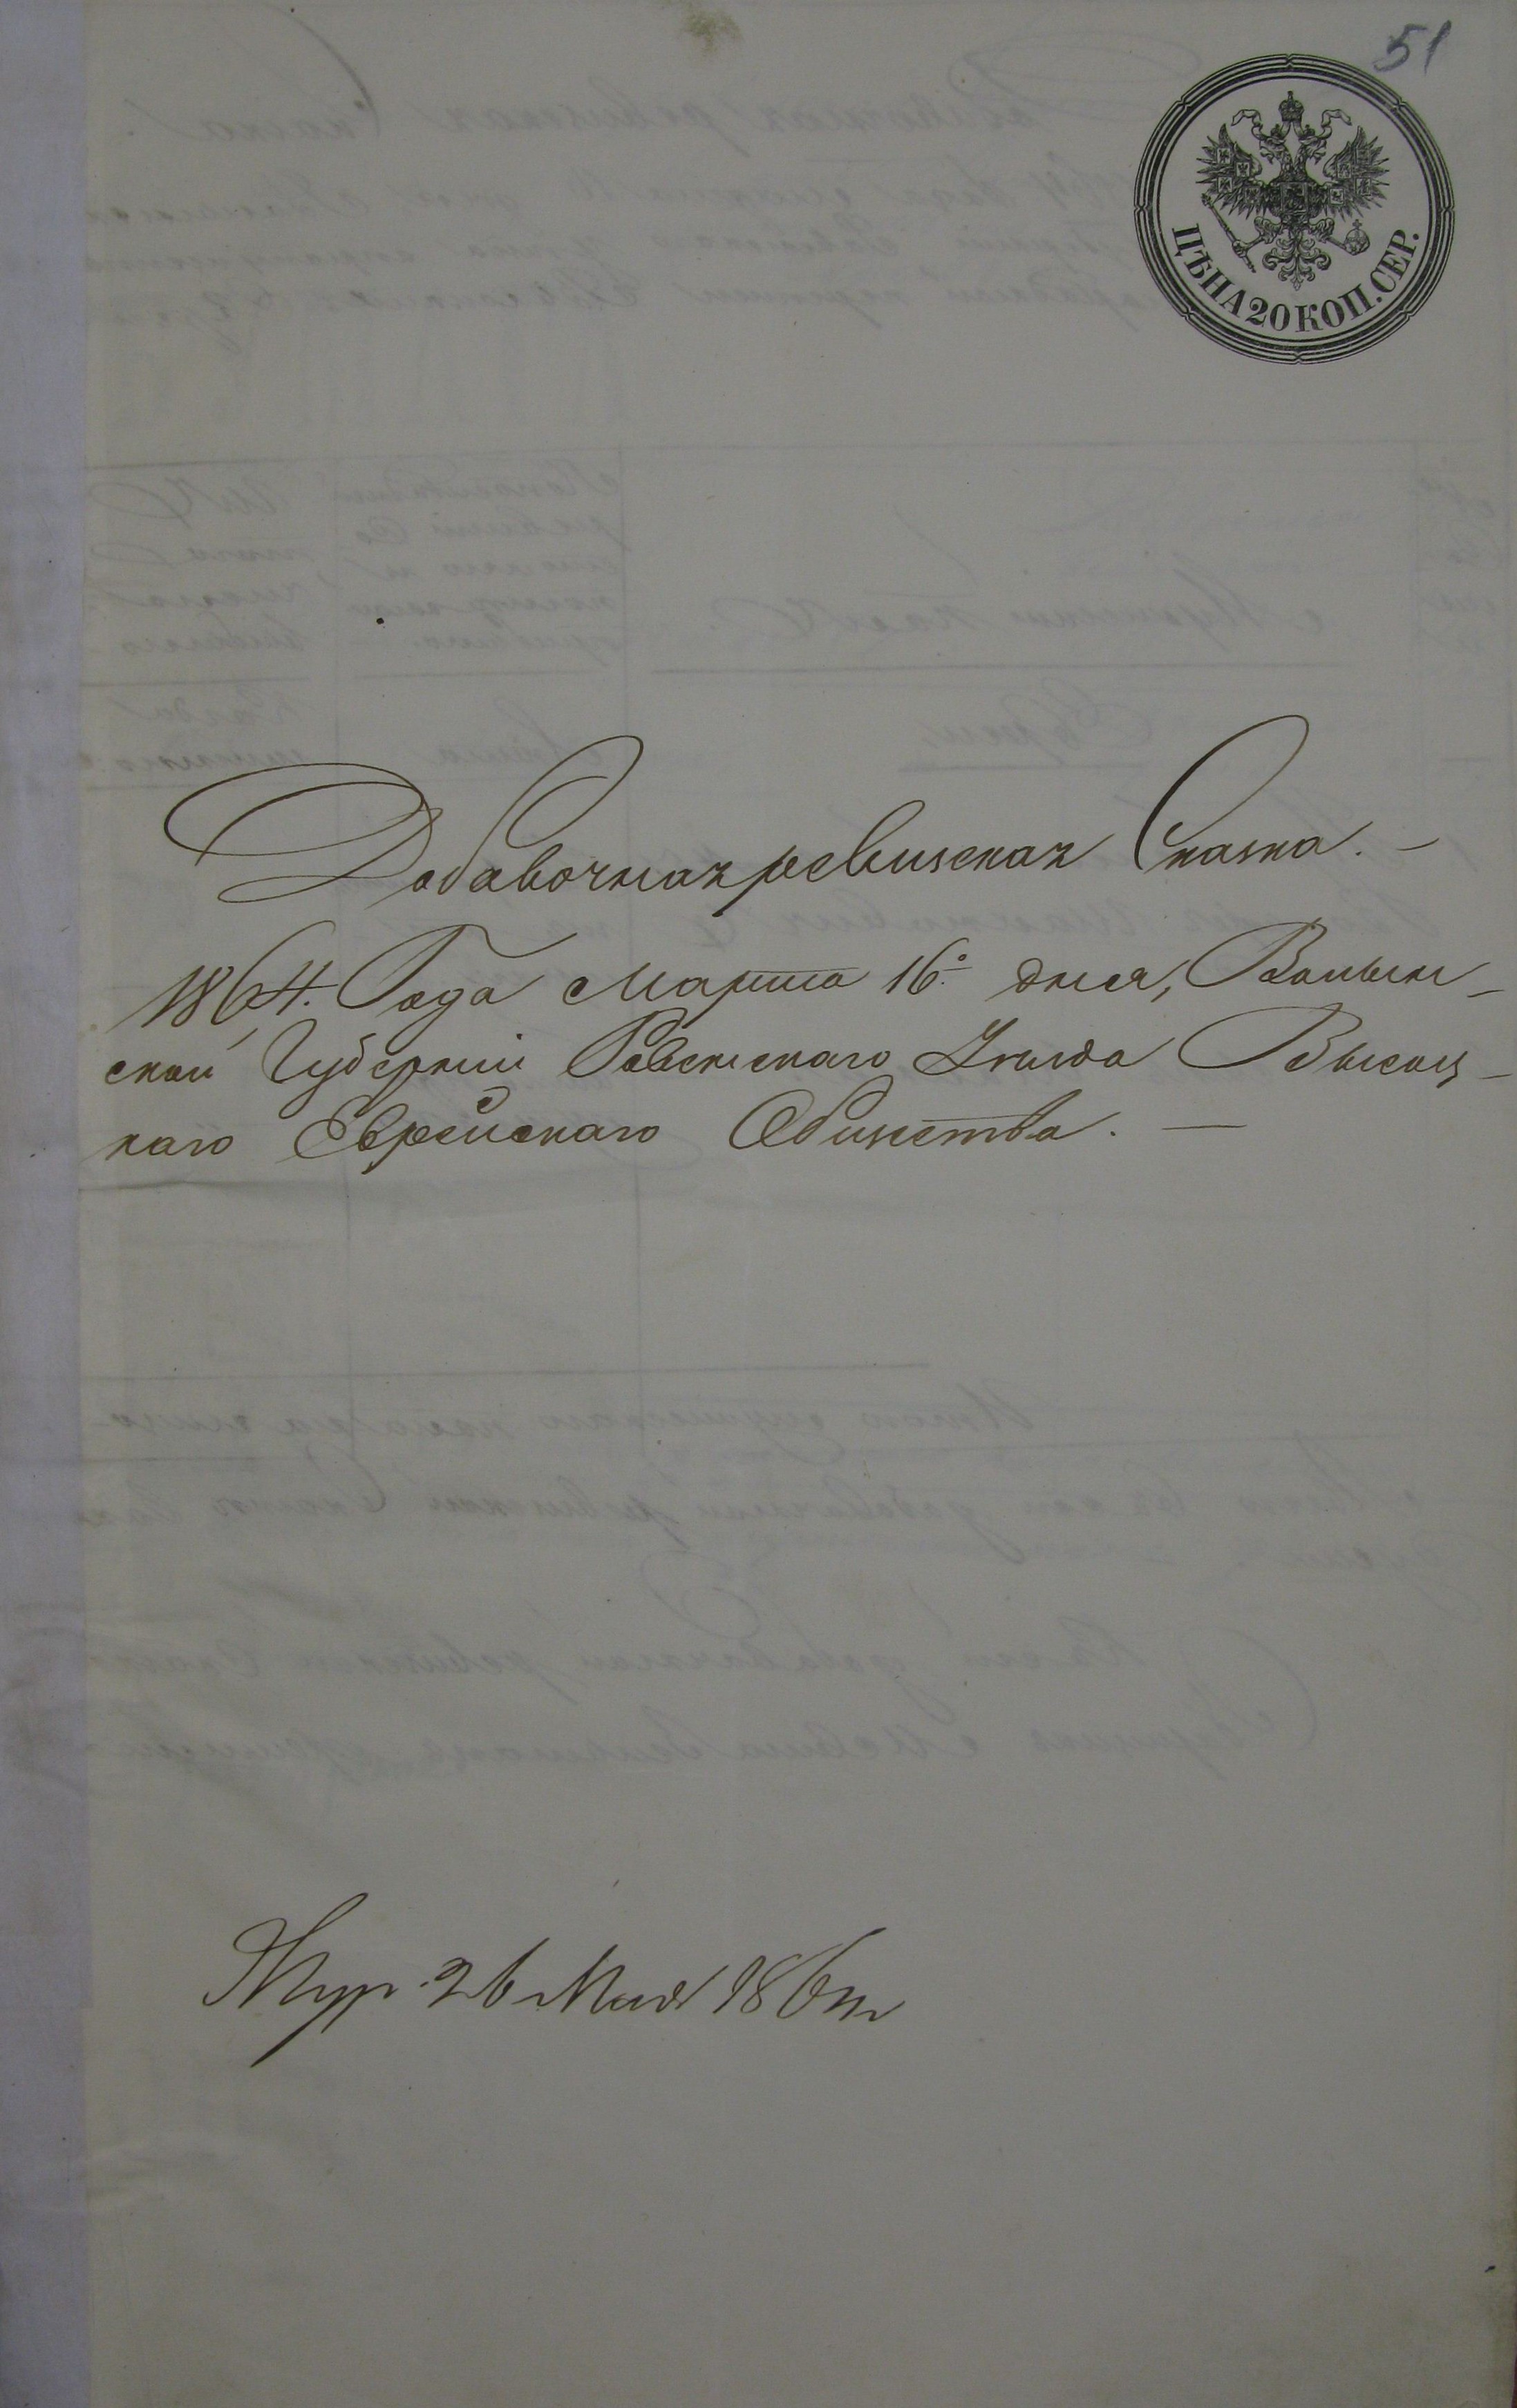 51
ЦѢНА 20 КОП. СЕР.
Добавочная ревизская Сказка. –
1864. Года Марта 16.º дня, Волын–
ской Губерніи Ровенскаго Уѣзда Высоц–
каго Еврейскаго Общества. —
Жур. 26 Мая 1864